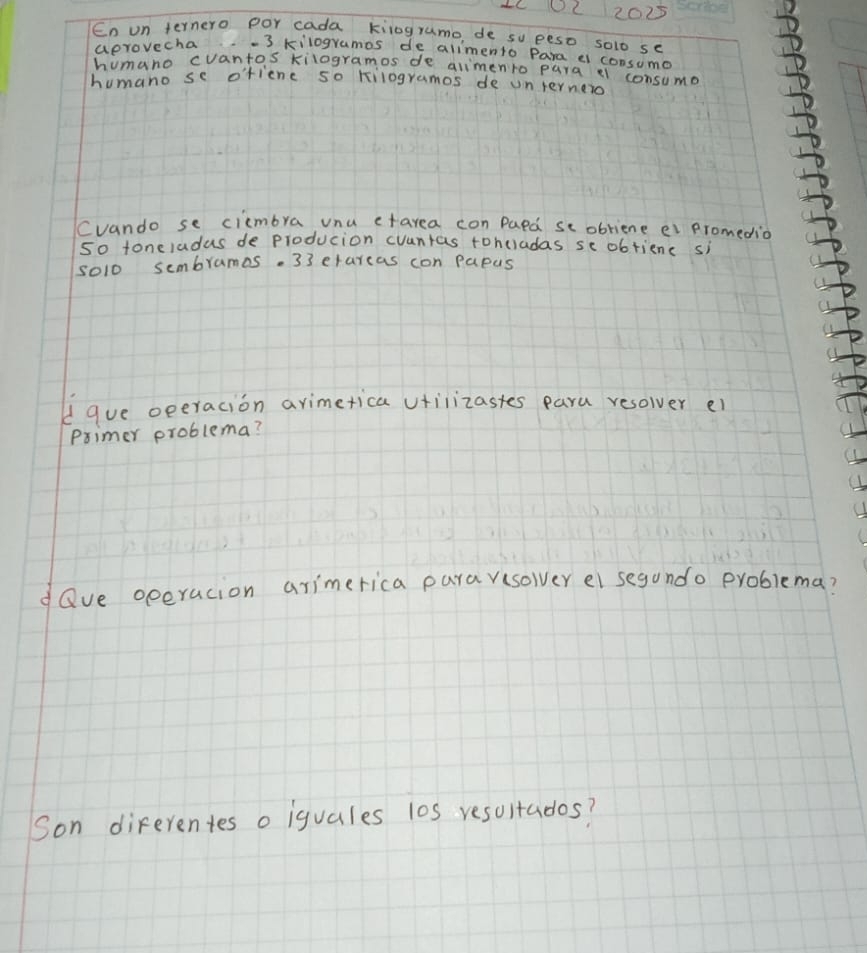 12 02 2025 Scribe
En un ternero por cada kilogramo, de su peso solo se
aprovecha . . .3 kilogramos de alimento Para el consumo
humano cuantos kilogramos de alimento para el consumo
humano se otiene 50 kilogramos de un ternero
Cuando se ciembra una etarea con Papá se obtiene el Promedio
50 toneladas de Producion cuantas toneladas se obtiene si
solo sembramos .33 etareas con Papas
¿que operación arimetica utilizastes para resolver el
Primer problema?
¿Que operacion arimetica para resolver el segundo problema?
Son diferentes o iguales los resultados?